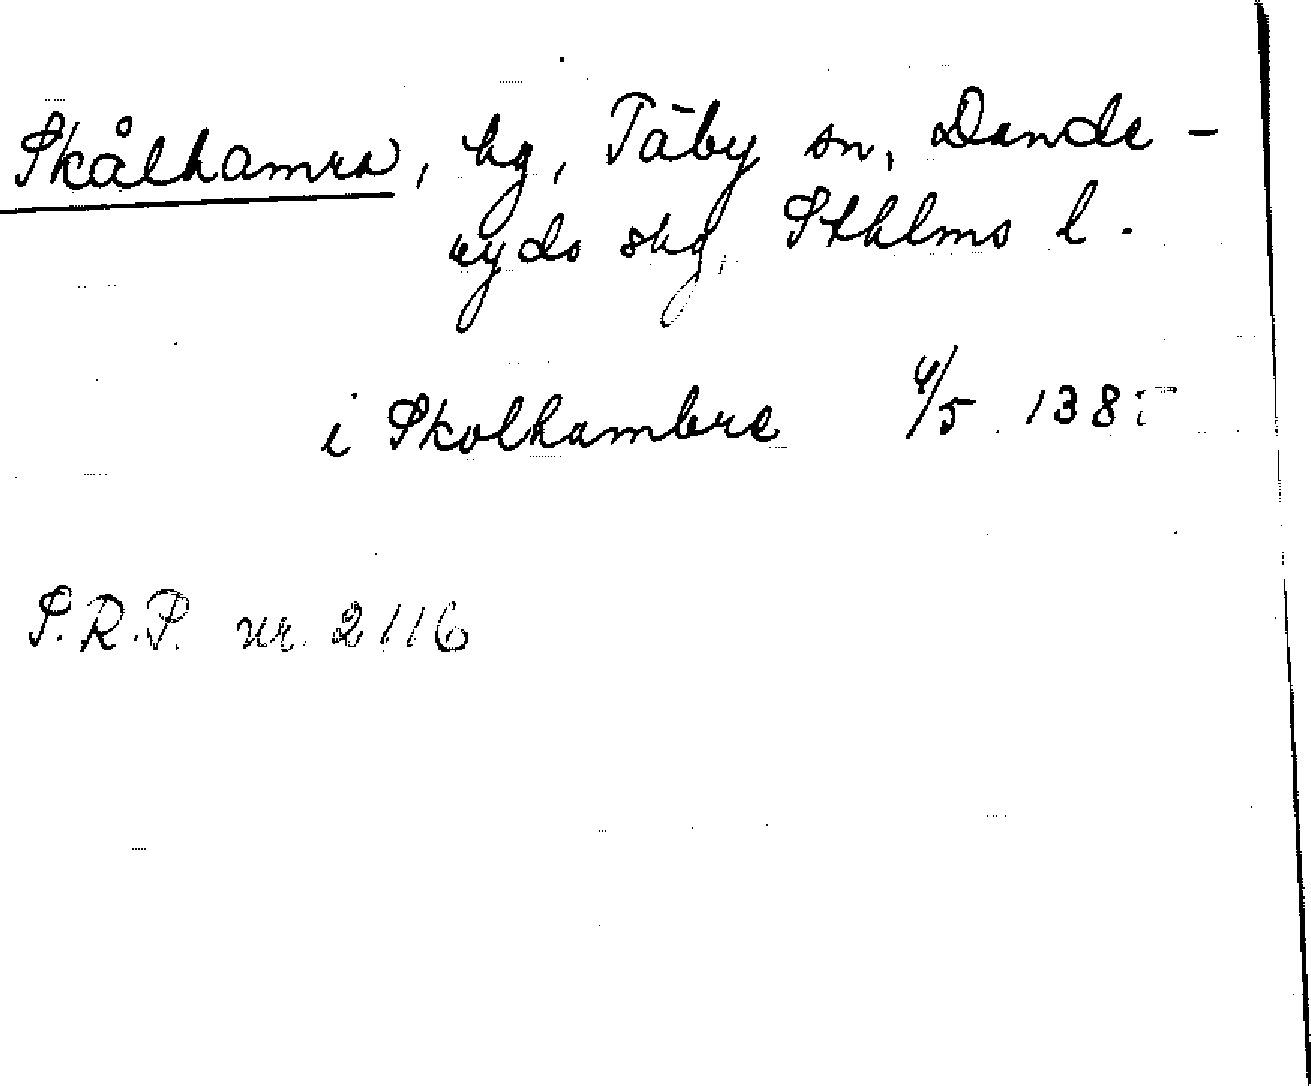 Skålhamra, hg, Täby sn, Dande-
ryds skg, Sthlms l.
i Skolhambre 4/5 138
S.R.P. nr. 2116